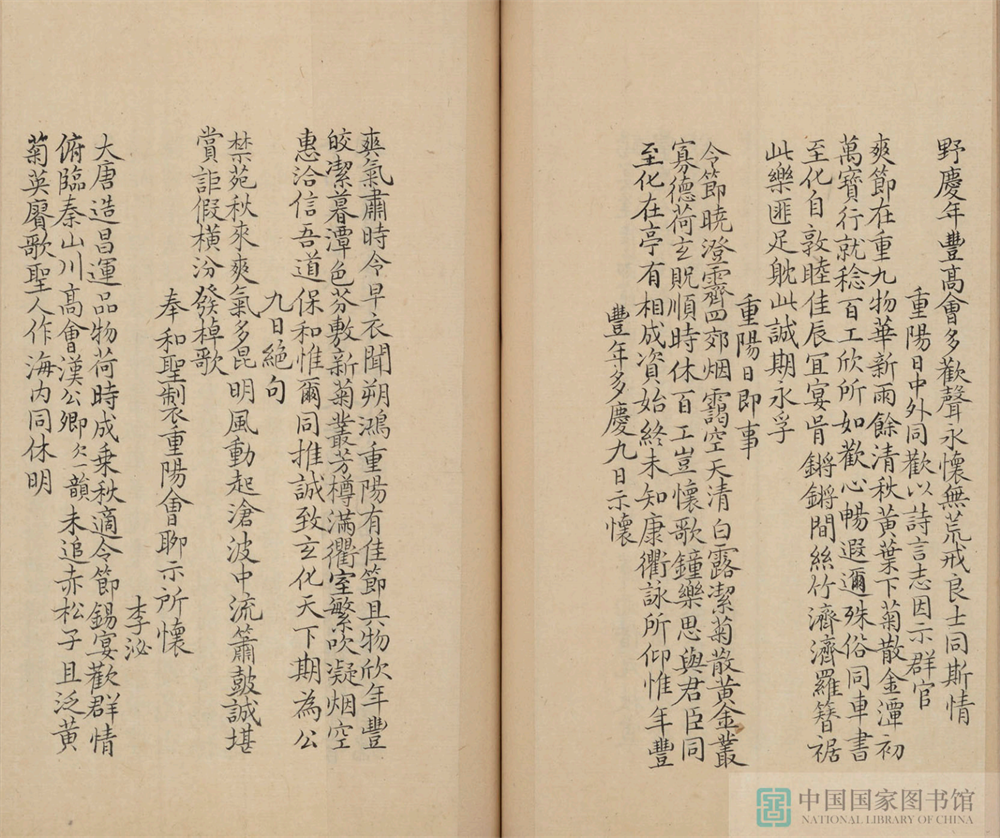 野慶年豐高會多歡聲永懷無荒戒良士同斯情
重陽日中外同歡以詩言志因示群官
爽節在重九物華新雨餘清秋黃葉下菊散金潭初
萬寳行就稔百工欣所如歡心暢遐邇殊俗同車書
至化自敦睦佳辰冝宴胥鏘鏘間絲竹濟濟羅簪裾
此樂匪足躭此誠期永孚
重陽日即事
令節曉澄霽四郊烟靄空天清白露潔菊散黃金叢
寡德荷玄貺順時休百工豈懷歌鐘樂思與君臣同
至化在亭有相成資始終未知康衢詠所仰惟年豐
豐年多慶九日示懷
爽氣肅時令早衣聞朔鴻重陽有佳節具物欣年豐
皎潔暮潭色芬敷新菊叢芳樽滿衢室繁吹凝烟空
惠洽信吾道保和惟爾同推誠致玄化天下期為公
九日絕句
禁苑秋來爽氣多昆明風動起滄波中流簫鼓誠堪
賞詎假橫汾發棹歌
奉和聖製重陽會聊示所懷
李泌
大唐造昌運品物荷時成乗秋適令節錫宴歡群情
俯臨秦山川高會漢公卿欠一韻未追赤松子且泛黃
菊英賡歌聖人作海内同休明
中国国家图书馆
NATIONAL LIBRARY OF CHINA